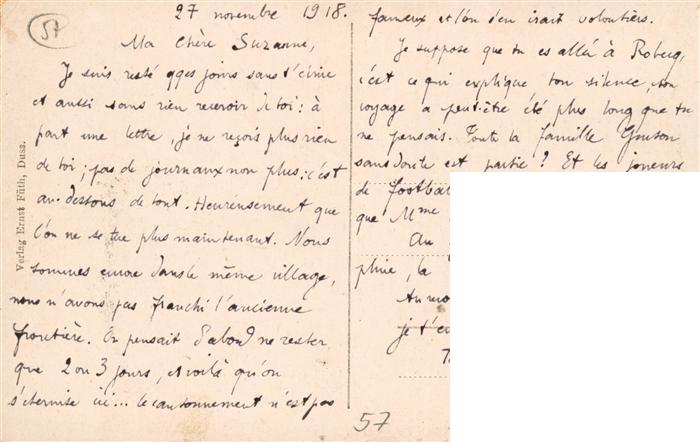 57
27 novembre 1918.
Ma Chère Suzanne,
Je suis resté qqes jours sans t'écrire
et aussi sans rien recevoir de toi : à
part une lettre, je ne reçois plus rien
de toi ; pas de journaux non plus : c'est
au-dessous de tout. Heureusement que
l'on ne se tue plus maintenant. Nous
sommes encore dans le même village,
nous n'avons pas franchi l'ancienne
frontière. On pensait d'abord ne rester
que 2 ou 3 jours, et voilà qu'on
s'éternise ici... le cantonnement n'est pas
fameux et l'on s'en irait volontiers.
Je suppose que tu es allée à
c'est ce qui explique ton silence, ton
voyage a peut-être été plus long que tu
ne pensais. Toute la famille
sans doute est partie ? Et les joueurs
de footba
que Mme
Au
pline, la
Au revo
je t'e
57
Verlag Ernst Füth, Duss.